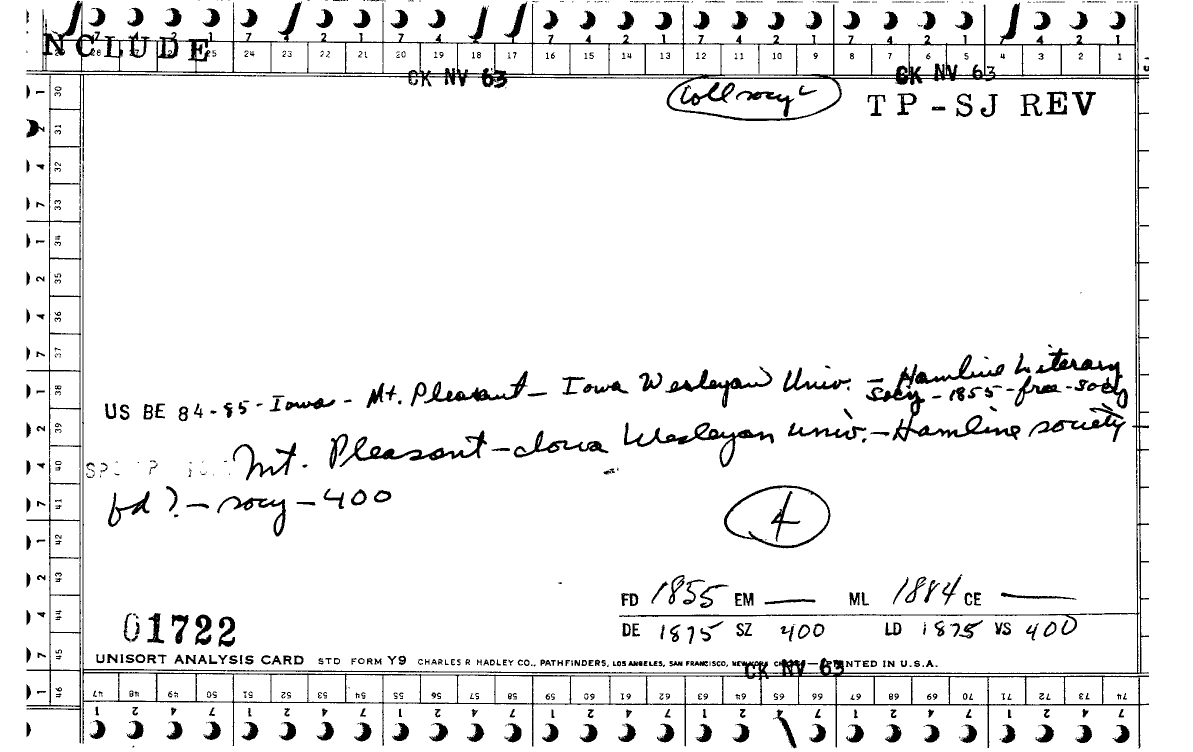 INCLUDE
7 4 2 1 7 4 2 1 7 4 2 1 7 4 2 1 7 4 2 1 7 4 2 1 7 4 2 1
25 24 23 22 21 20 19 18 17 16 15 14 13 12 11 10 9 8 7 6 5 4 3 2 1
CK NV 63 CK NV 63
Coll socy TP-SJ REV
1 30
2 31
4 32
7 33
1 34
2 35
4 36
7 37
1 38
2 39
4 40
7 41
1 42
2 43
4 44
7 45
1 46
US BE 84-85-Iowa - Mt. Pleasant - Iowa Wesleyan Univ. - Hamline Literary
Socy - 1855 - free - socy
Mt. Pleasant - Iowa Wesleyan Univ. - Hamline society
fd ? - socy - 400
4
FD 1855 EM — ML 1884 CE —
DE 1875 SZ 400 LD 1875 VS 400
01722
UNISORT ANALYSIS CARD STD FORM Y9 CHARLES R HADLEY CO., PATHFINDERS, LOS ANGELES, SAN FRANCISCO, PRINTED IN U.S.A.
CK NV 63
47 48 49 50 51 52 53 54 55 56 57 58 59 60 61 62 63 64 65 66 67 68 69 70 71 72 73 74
1 2 4 7 1 2 4 7 1 2 4 7 1 2 4 7 1 2 4 7 1 2 4 7 1 2 4 7